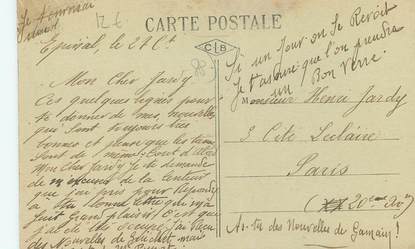 12 €
CARTE POSTALE
C L B
Epinal, le 27 Ct
Mon Cher Jardy
Ces quelques lignes pour
te donner de mes nouvelles
qui sont toujours très
bonnes et pense que les tiennes
sont de même.
Mon Cher Jardy je
de la lenteur
que j'ai mis pour répondre
a ta bonne lettre qui m'a
fait grand plaisir
j'ai été
des Nouvelles de
Si un Jour on Se Revoit
Je t'assure que l'on prendra
un Bon Verre.
Monsieur Henri Jardy
3 Cité Leclaire
Paris
20eme
As-tu des Nouvelles de Gamain!